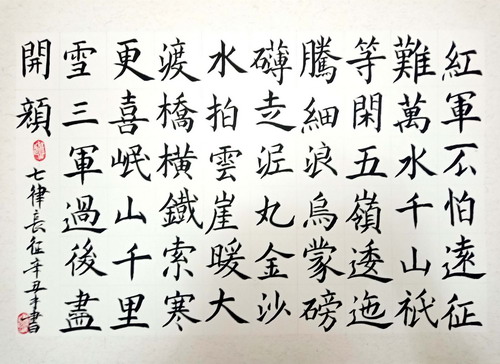 紅軍不怕遠征
難萬水千山祇
等閑五嶺逶迤
騰細浪烏蒙磅
礴走泥丸金沙
水拍雲崖暖大
渡橋橫鐵索寒
更喜岷山千里
雪三軍過後盡
開顏
七律長征辛丑書